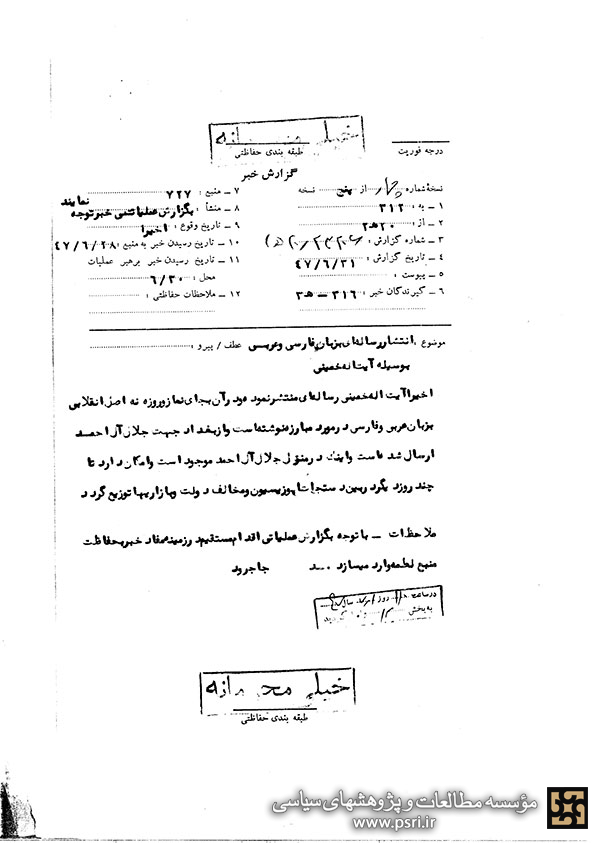 خیلی محرمانه
طبقه بندی حفاظتی
درجه فوریت
گزارش خبر
نسخهٔ شماره چهار از پنج نسخه
۱ ـ به : ۳۱۲
۲ ـ از : ۲۰ هـ ۲
۳ ـ شماره گزارش :
۴ ـ تاریخ گزارش : ۴۷/۶/۳۱
۵ ـ پیوست :
۶ ـ گیرندگان خبر : ۳۱۶ ـ هـ ۳
۷ ـ منبع : ۷۲۷
۸ ـ منشأ : بگزارش عملیاتی خبر توجه نمایند
۹ ـ تاریخ وقوع : اخیرا
۱۰ ـ تاریخ رسیدن خبر به منبع : ۴۷/۶/۲۸
۱۱ ـ تاریخ رسیدن خبر برهبر عملیات
محل : ۶/۳۰
۱۲ ـ ملاحظات حفاظتی :
موضوع : انتشار رساله ای بزبان فارسی و عربی عطف / پیرو :
بوسیله آیت اله خمینی
اخیرا آیت اله خمینی رساله ای منتشر نموده و در آن بجای نماز و روزه نه اصل انقلابی
بزبان عربی و فارسی در مورد مبارزه نوشته است و از بغداد جهت جلال آل احمد
ارسال شده است و اینک در منزل جلال آل احمد موجود است و امکان دارد تا
چند روز دیگر در بین دستجات اپوزیسیون و مخالف دولت و بازاریها توزیع گردد
ملاحظات ـ با توجه بگزارش عملیاتی اقدام مستقیم در زمینه مفاد خبر بحفاظت
منبع لطمه وارد میسازد جاجرود
در ساعت روز سال
به بخش ۳۱۲ گردید
خیلی محرمانه
طبقه بندی حفاظتی
مؤسسه مطالعات و پژوهشهای سیاسی
www.psri.ir